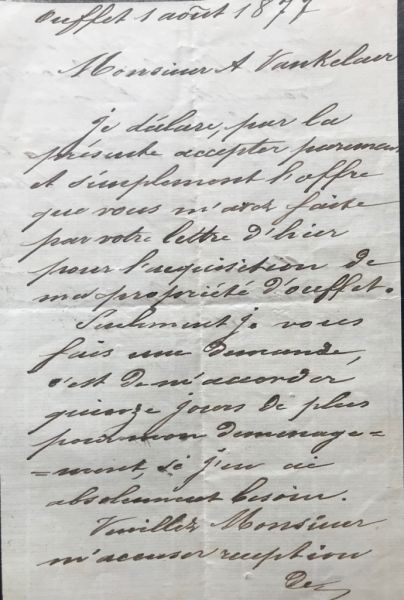 Ouffet 1 août 1877
Monsieur A Vankelaer
je déclare, par la
présente accepter purement
et simplement l'offre
que vous m'avez faite
par votre lettre d'hier
pour l'acquisition de
ma propriété d'ouffet.
Seulement je vous
fais une demande,
c'est de m'accorder
quinze jours de plus
pour mon demenage=
=ment, si j'en ai
absolument besoin.
Veuillez Monsieur
m'accuser reception
de